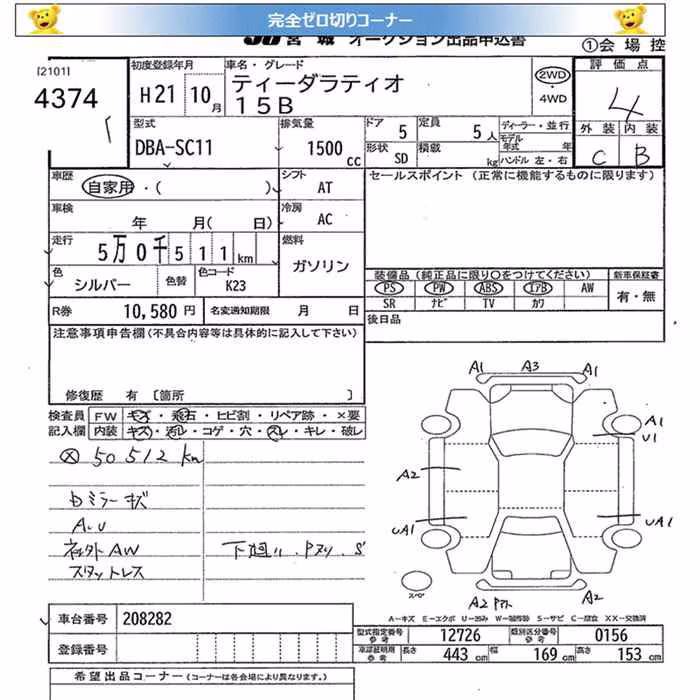 完全ゼロ切りコーナー
JU宮城 オークション出品申込書 ①会場控
[2101]
4374
初度登録年月
H21 10月
車名・グレード
ティーダラティオ
15B
2WD
・
4WD
評価点
4
外装 内装
C B
型式
DBA-SC11
排気量
1500 cc
ドア 5
定員 5人
形状 SD
積載 kg
ディーラー・並行
モデル年式 年
ハンドル 左・右
車歴
自家用・( )
シフト AT
セールスポイント (正常に機能するものに限ります)
車検
年 月( 日)
冷房 AC
走行
5万0千511km
燃料
ガソリン
色
シルバー
色替
色コード
K23
装備品(純正品に限り○をつけてください) 新車保証書
PS PW ABS エアB AW 有・無
SR ナビ TV カワ
R券 10,580円 名変通知期限 月 日
後日品
注意事項申告欄(不具合内容等は具体的に記入して下さい)
修復歴 有 [箇所 ]
検査員 FW キズ・飛石・ヒビ割・リペア跡・×要
記入欄 内装 キズ・汚レ・コゲ・穴・スレ・キレ・破レ
A1 A3 A1
A1
U1
A2
UA1 UA1
A2 A2
スペ
50512km
ミラーキズ
A.U
AW
下廻り.Pヌリ.S
スタットレス
A-キズ E-エクボ U-凹み W-補修跡 S-サビ C-腐食 XX-交換済
車台番号 208282
登録番号
型式指定番号参考 12726 類別区分番号参考 0156
車庫証明用参考 長さ 443cm 幅 169cm 高さ 153cm
希望出品コーナー(コーナーは各会場により異なります。)